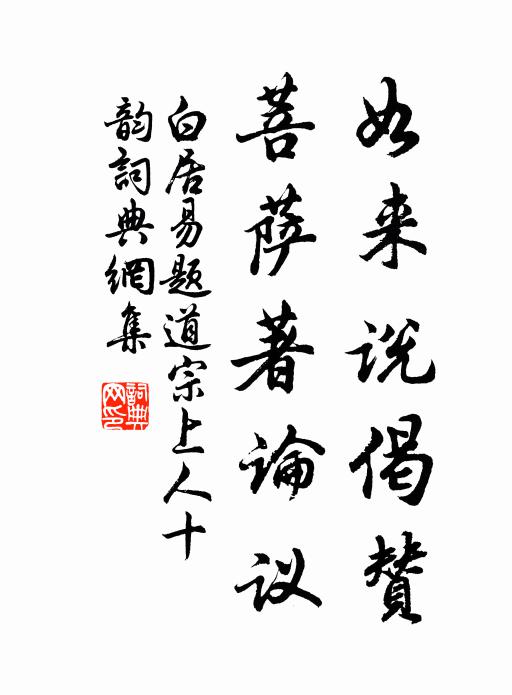 如来说偈赞
菩萨著论议
白居易题道宗上人十
韵词典網集
詞典網印